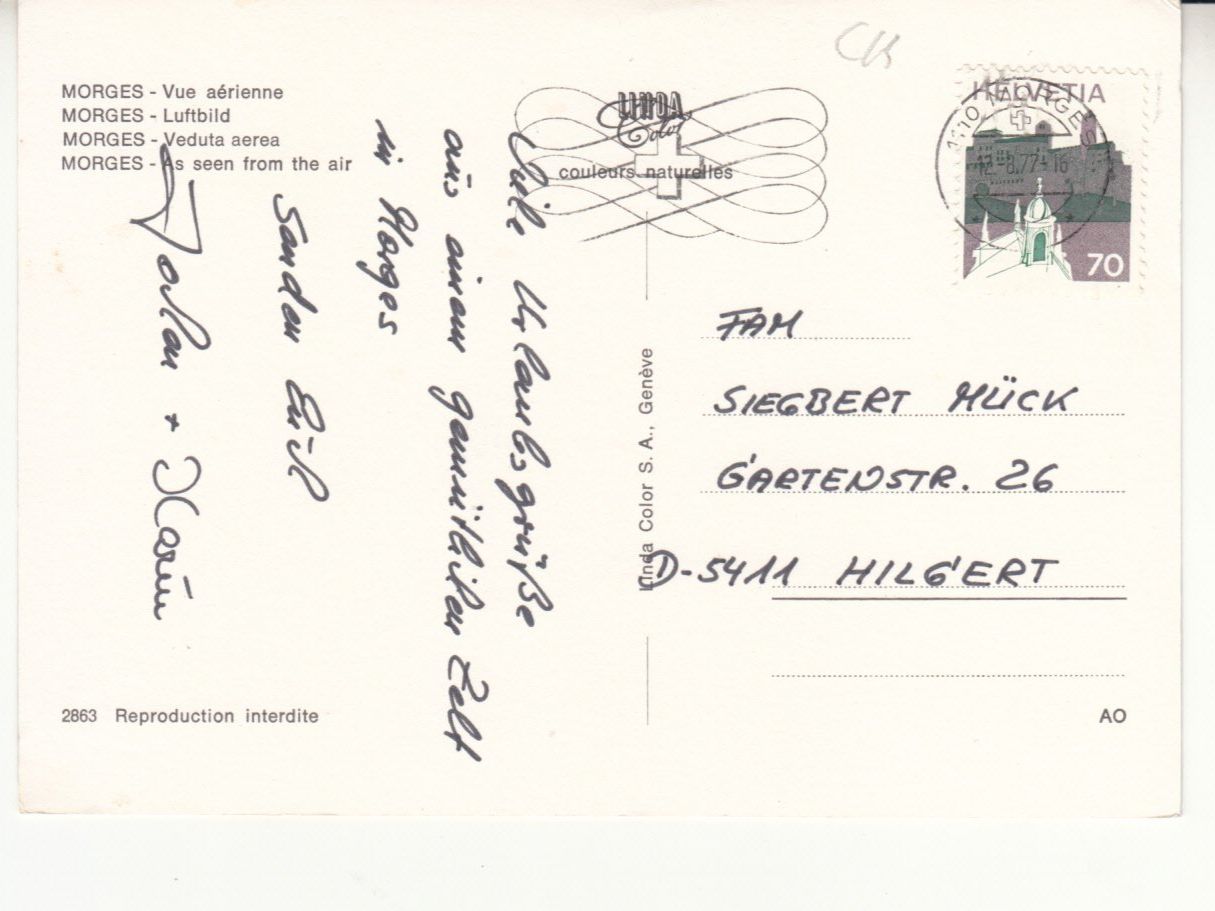 MORGES - Vue aérienne
MORGES - Luftbild
MORGES - Veduta aerea
MORGES - As seen from the air
Viele Urlaubsgrüße
aus einem gemütlichen Zelt
in Morges
Senden Euch
+ Karin
2863 Reproduction interdite
LINDA
Color
couleurs naturelles
Linda Color S. A., Genève
CH
HELVETIA
70
1110 MORGES
77-16
FAM
SIEGBERT MÜCK
GARTENSTR. 26
D-5411 HILGERT
AO